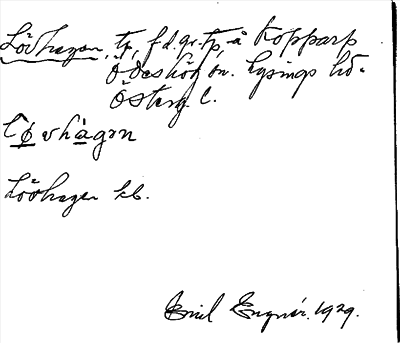 Lövhagen, tp, f.d.gr.tp, å Kopparp
Ödeshög sn. Lysings hd.
Österg. l.
Lövhagen kb.
Emil Engnér. 1929.